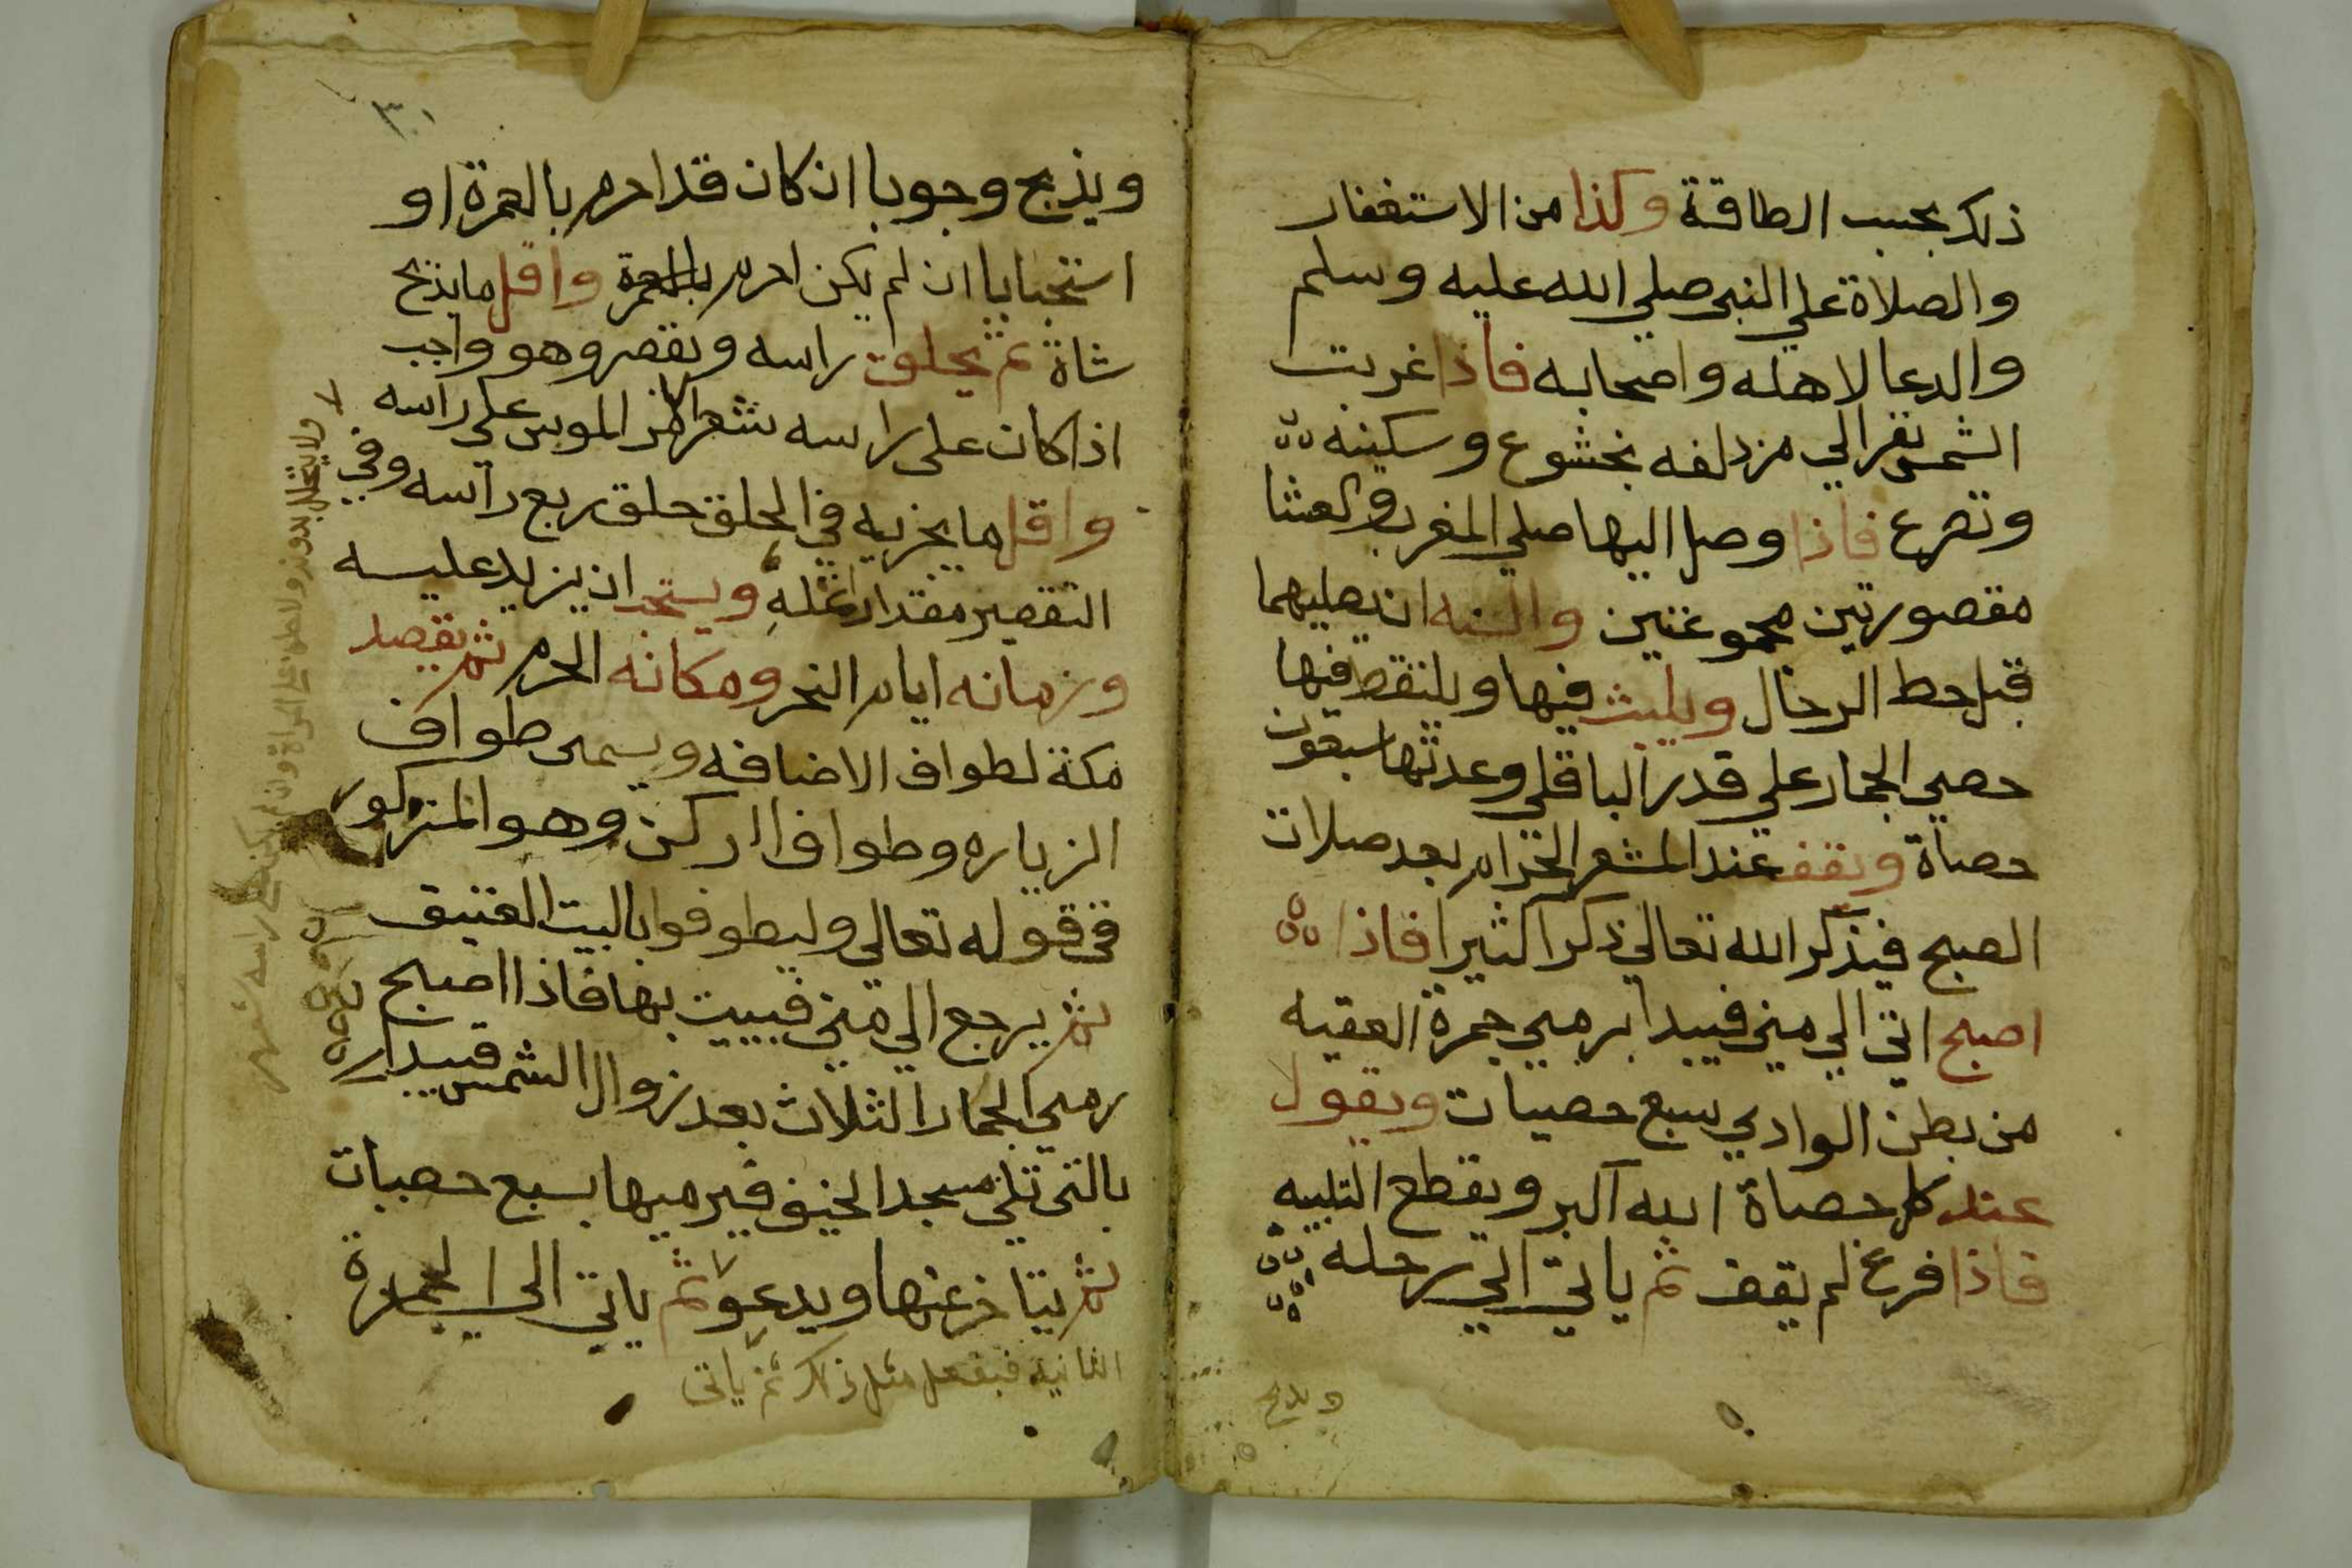 ذلك بحسب الطاقة وكذا من الاستغفار
والصلاة علي النبي صلي الله عليه وسلم
والدعا لاهله واصحابه فاذا غربت
الشمس نفر الي مزدلفه بخشوع وسكينه
وتضرع فاذا وصل اليها صلي المغرب والعشا
مقصورتين مجموعتين والسنه ان يصليهما
قبل حط الرحال ويلبث فيها ويلتقط فيها
حصي الجمار علي قدر الباقلي وعدتها سبعون
حصاة ويقف عند المشعر الحرام بعد صلات
الصبح فيذكر الله تعالي ذكرا كثيرا فاذا
اصبح اتي الي مني فيبدا برمي جمرة العقبه
من بطن الوادي بسبع حصيات ويقول
عند كل حصاة الله اكبر ويقطع التلبيه
فاذا فرغ لم يقف ثم ياتي الي رحله
ويذبح
٣٠
ويذبح وجوبا ان كان قد احرم بالعمرة او
استحبابا ان لم يكن احرم بالعمرة واقل ما يذبح
شاة ثم يحلق راسه ويقصر وهو واجب
اذا كان علي راسه شعر الموس علي راسه
واقل ما يجزيه في الحلق حلق ربع راسه وفي
التقصير مقدار انمله ويستحب ان يزيد عليه
وزمانه ايام النحر ومكانه الحرم ثم يقصد
مكة لطواف الاضافه ويسمى طواف
الزياره وطواف الركن وهو المذكور
في قوله تعالي وليطوفوا بالبيت العتيق
ثم يرجع الي مني فيبيت بها فاذا اصبح
رمي الجمار الثلاث بعد زوال الشمس فيبدا
بالتي تلي مسجد الخيف فيرميها بسبع حصيات
ثم يتاخر عنها ويدعو ثم ياتي الي الجمرة
الثانية فيفعل مثل ذلك ثم ياتي